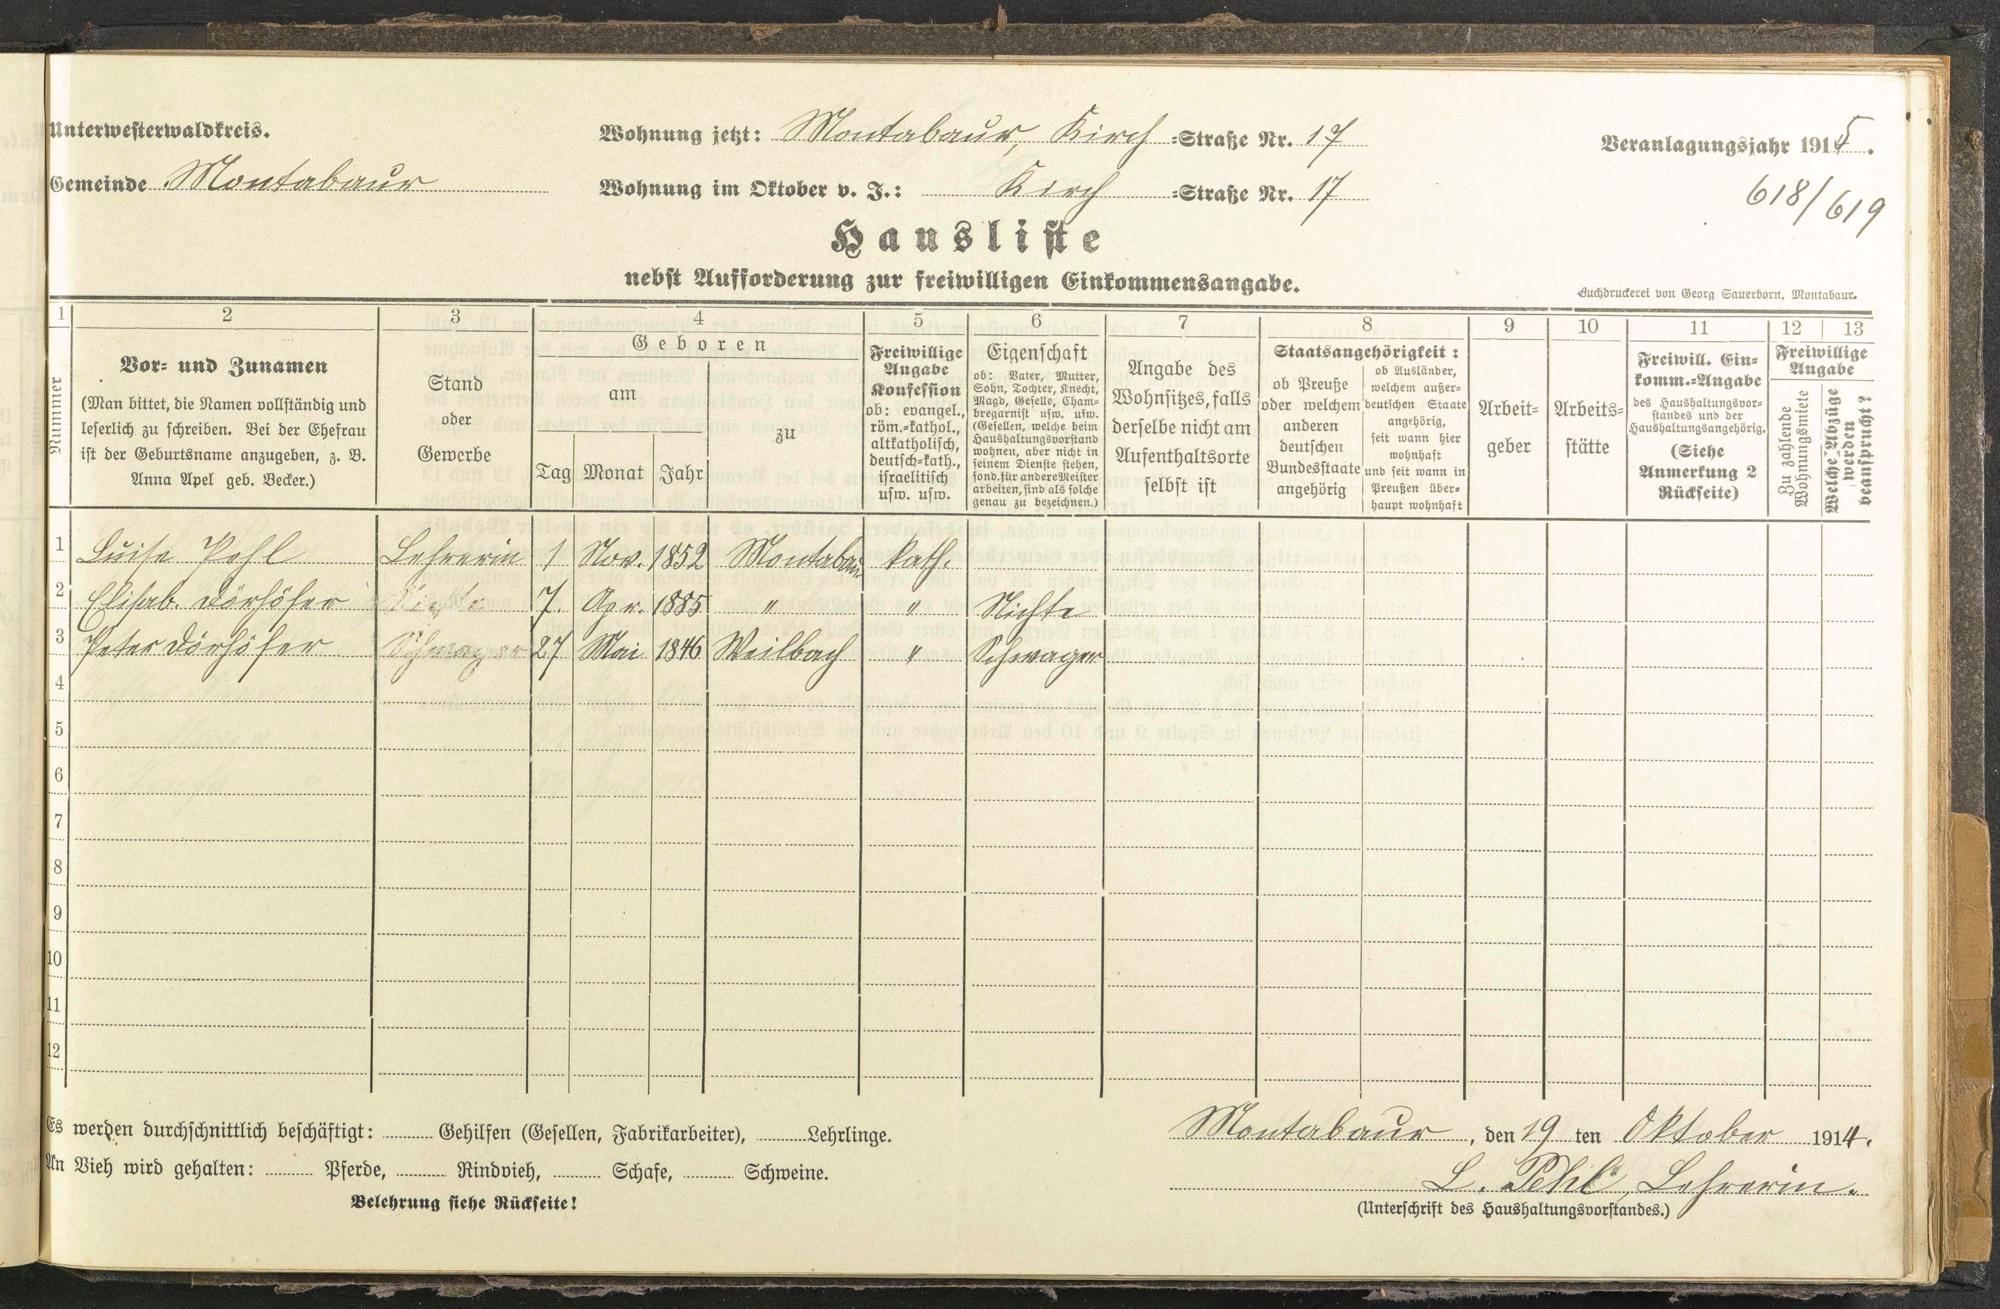 Unterwesterwaldkreis.
Gemeinde Montabaur
Wohnung jetzt: Montabaur, Kirch =Straße Nr. 17
Wohnung im Oktober v. J.: Kirch =Straße Nr. 17
Veranlagungsjahr 1915.
618/619
Hausliste
nebst Aufforderung zur freiwilligen Einkommensangabe.
Buchdruckerei von Georg Sauerborn, Montabaur.
1 2 3 4 5 6 7 8 9 10 11 12 13
Nummer
Vor= und Zunamen
(Man bittet, die Namen vollständig und
leserlich zu schreiben. Bei der Ehefrau
ist der Geburtsname anzugeben, z. B.
Anna Apel geb. Becker.)
Stand
oder
Gewerbe
Geboren
am
Tag Monat Jahr
zu
Freiwillige
Angabe
Konfession
ob: evangel.,
röm.=kathol.,
altkatholisch,
deutsch=kath.,
israelitisch
usw. usw.
Eigenschaft
ob: Vater, Mutter,
Sohn, Tochter, Knecht,
Magd, Geselle, Cham=
bregarnist usw. usw.
(Gesellen, welche beim
Haushaltungsvorstand
wohnen, aber nicht in
seinem Dienste stehen,
sond. für andere Meister
arbeiten, sind als solche
genau zu bezeichnen.)
Angabe des
Wohnsitzes, falls
derselbe nicht am
Aufenthaltsorte
selbst ist
Staatsangehörigkeit:
ob Preuße
oder welchem
anderen
deutschen
Bundesstaate
angehörig
ob Ausländer,
welchem außer=
deutschen Staate
angehörig,
seit wann hier
wohnhaft
und seit wann in
Preußen über=
haupt wohnhaft
Arbeit=
geber
Arbeits=
stätte
Freiwill. Ein=
komm.=Angabe
des Haushaltungsvor=
standes und der
Haushaltungsangehörig.
(Siehe
Anmerkung 2
Rückseite)
Freiwillige
Angabe
Zu zahlende
Wohnungsmiete
Welche Abzüge
werden
beansprucht?
1 Luise Pehl Lehrerin 1 Nov. 1852 Montabaur kath.
2 Elisab. Dörhöfer Nichte 7. Apr. 1885 " " Nichte
3 Peter Dörhöfer Schwager 27 Mai 1846 Weilbach " Schwager
4
5
6
7
8
9
10
11
12
Es werden durchschnittlich beschäftigt: Gehilfen (Gesellen, Fabrikarbeiter), Lehrlinge.
An Vieh wird gehalten: Pferde, Rindvieh, Schafe, Schweine.
Belehrung siehe Rückseite!
Montabaur, den 19 ten Oktober 1914.
L. Pehl, Lehrerin.
(Unterschrift des Haushaltungsvorstandes.)